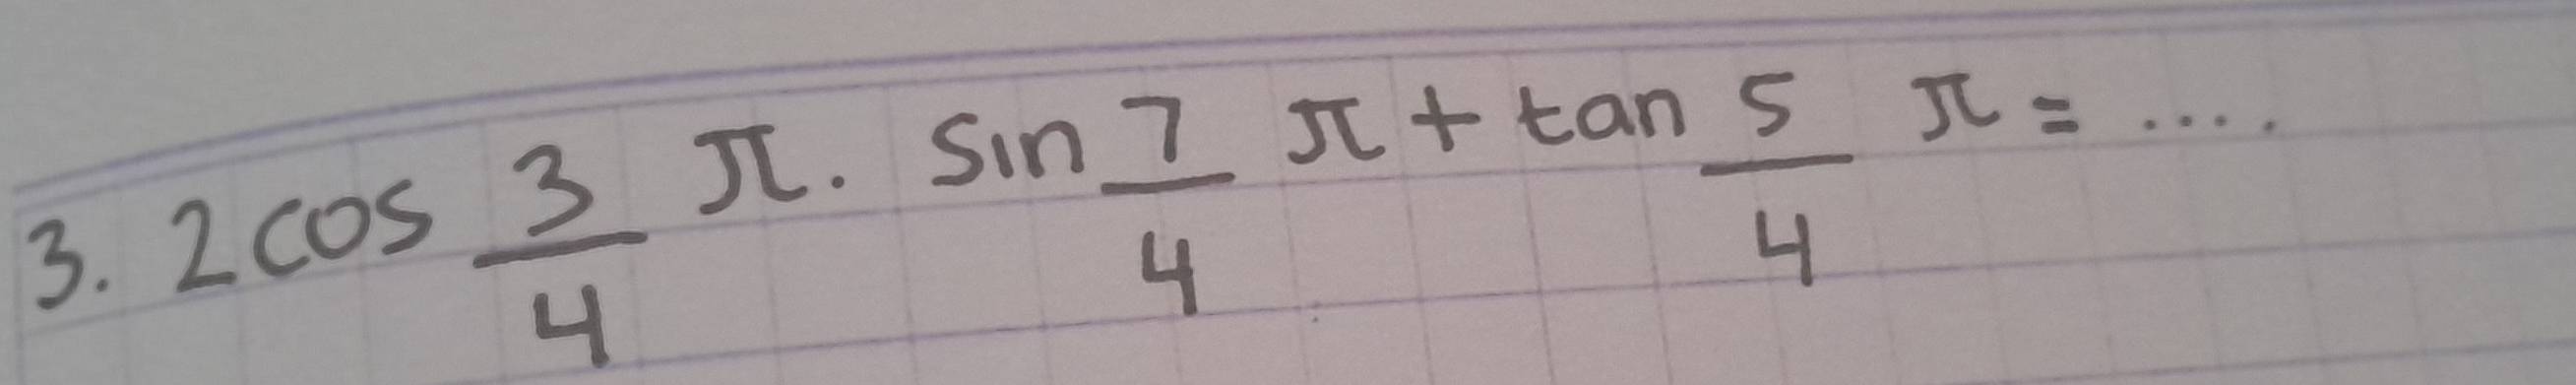 3. 2 cos 3/4 π . sin 7/4 π + tan 5/4 π = ....